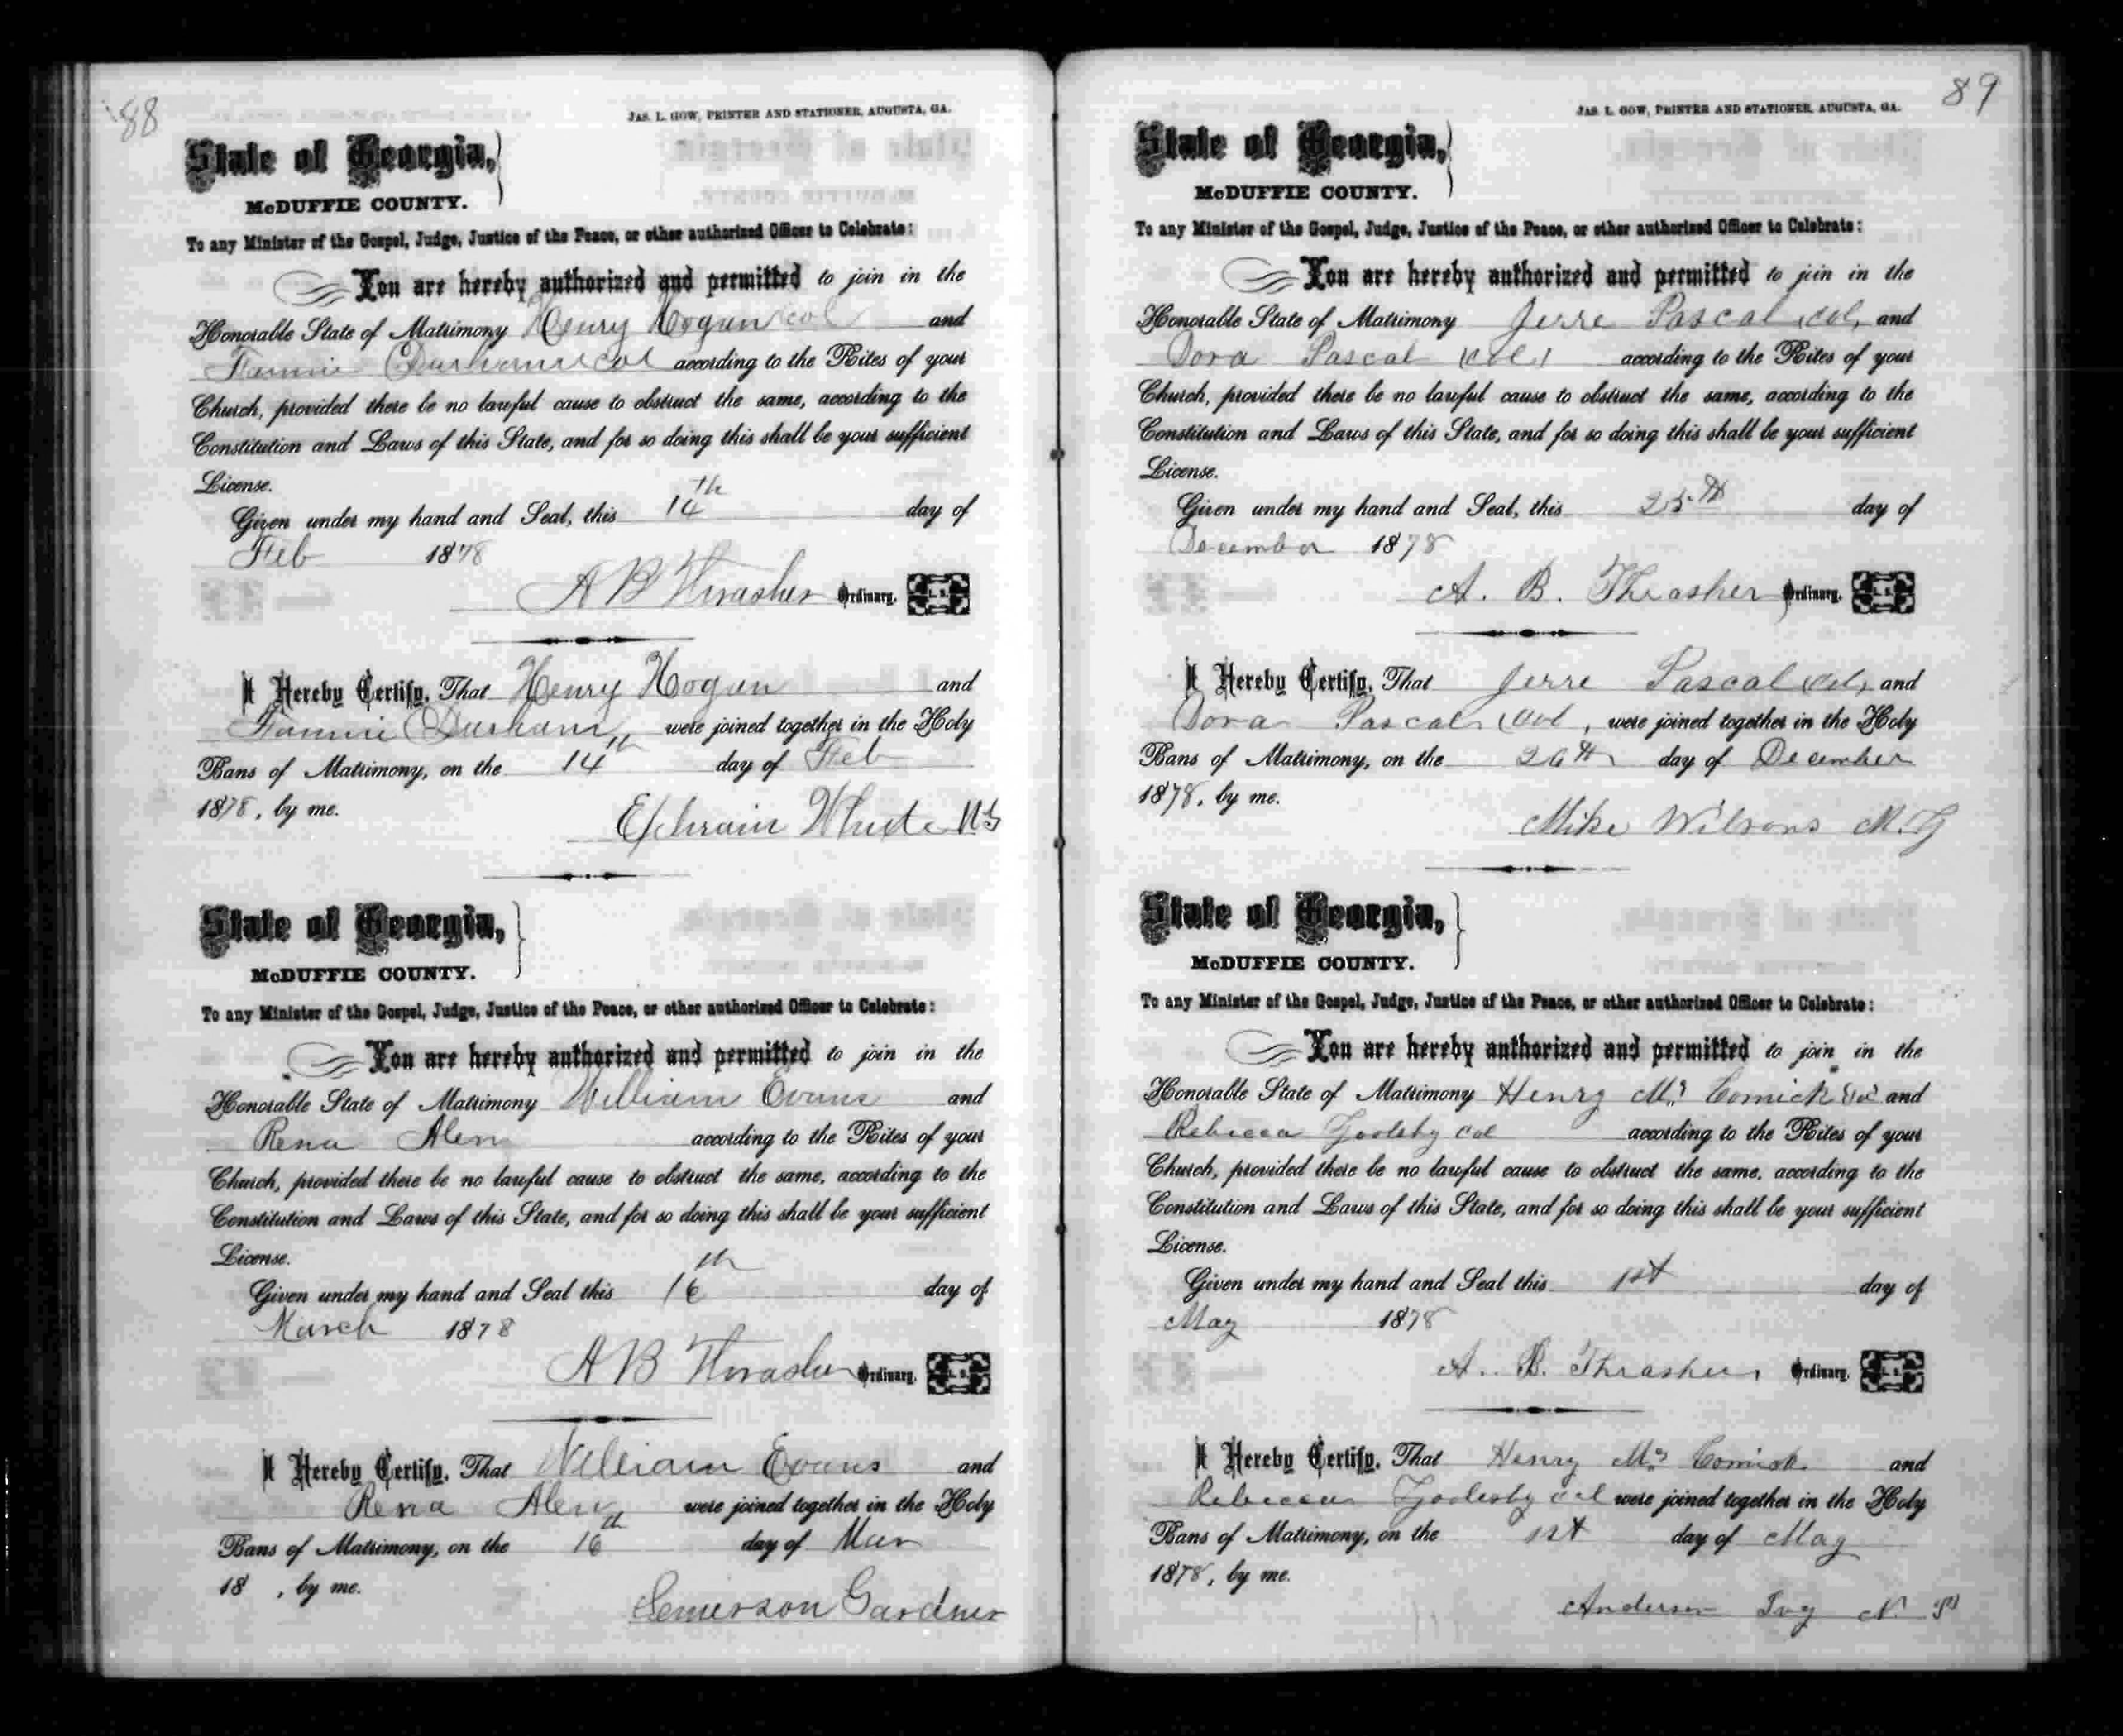 88
JAS. L. GOW, PRINTER AND STATIONER, AUGUSTA, GA.
State of Georgia,
McDUFFIE COUNTY.
To any Minister of the Gospel, Judge, Justice of the Peace, or other authorized Officer to Celebrate:
You are hereby authorized and permitted to join in the
Honorable State of Matrimony Henry Hogan col and
Fannie Durham col according to the Rites of your
Church, provided there be no lawful cause to obstruct the same, according to the
Constitution and Laws of this State, and for so doing this shall be your sufficient
License.
Given under my hand and Seal, this 14th day of
Feb 1878
A B Thrasher Ordinary. L. S.
I Hereby Certify, That Henry Hogan and
Fannie Durham were joined together in the Holy
Bans of Matrimony, on the 14th day of Feb
1878, by me.
Ephraim White MG
State of Georgia,
McDUFFIE COUNTY.
To any Minister of the Gospel, Judge, Justice of the Peace, or other authorized Officer to Celebrate:
You are hereby authorized and permitted to join in the
Honorable State of Matrimony William Evans and
Rena Alen according to the Rites of your
Church, provided there be no lawful cause to obstruct the same, according to the
Constitution and Laws of this State, and for so doing this shall be your sufficient
License.
Given under my hand and Seal this 16th day of
March 1878
A B Thrasher Ordinary. L. S.
I Hereby Certify, That William Evans and
Rena Alen were joined together in the Holy
Bans of Matrimony, on the 16th day of Mar
18 , by me.
Emerson Gardner
89
JAS. L. GOW, PRINTER AND STATIONER, AUGUSTA, GA.
State of Georgia,
McDUFFIE COUNTY.
To any Minister of the Gospel, Judge, Justice of the Peace, or other authorized Officer to Celebrate:
You are hereby authorized and permitted to join in the
Honorable State of Matrimony Jerre Pascal (col) and
Dora Pascal (col) according to the Rites of your
Church, provided there be no lawful cause to obstruct the same, according to the
Constitution and Laws of this State, and for so doing this shall be your sufficient
License.
Given under my hand and Seal, this 25th day of
December 1878
A. B. Thrasher Ordinary. L. S.
I Hereby Certify, That Jerre Pascal (col) and
Dora Pascal (col), were joined together in the Holy
Bans of Matrimony, on the 26th day of December
1878, by me.
Mike Wilsons M.G
State of Georgia,
McDUFFIE COUNTY.
To any Minister of the Gospel, Judge, Justice of the Peace, or other authorized Officer to Celebrate:
You are hereby authorized and permitted to join in the
Honorable State of Matrimony Henry Mc Comick col and
Rebecca Goolsby col according to the Rites of your
Church, provided there be no lawful cause to obstruct the same, according to the
Constitution and Laws of this State, and for so doing this shall be your sufficient
License.
Given under my hand and Seal this 1st day of
May 1878
A. B. Thrasher Ordinary. L. S.
I Hereby Certify, That Henry Mc Comick and
Rebecca Goolesby col were joined together in the Holy
Bans of Matrimony, on the 1st day of May
1878, by me.
Anderson Ivy N. P